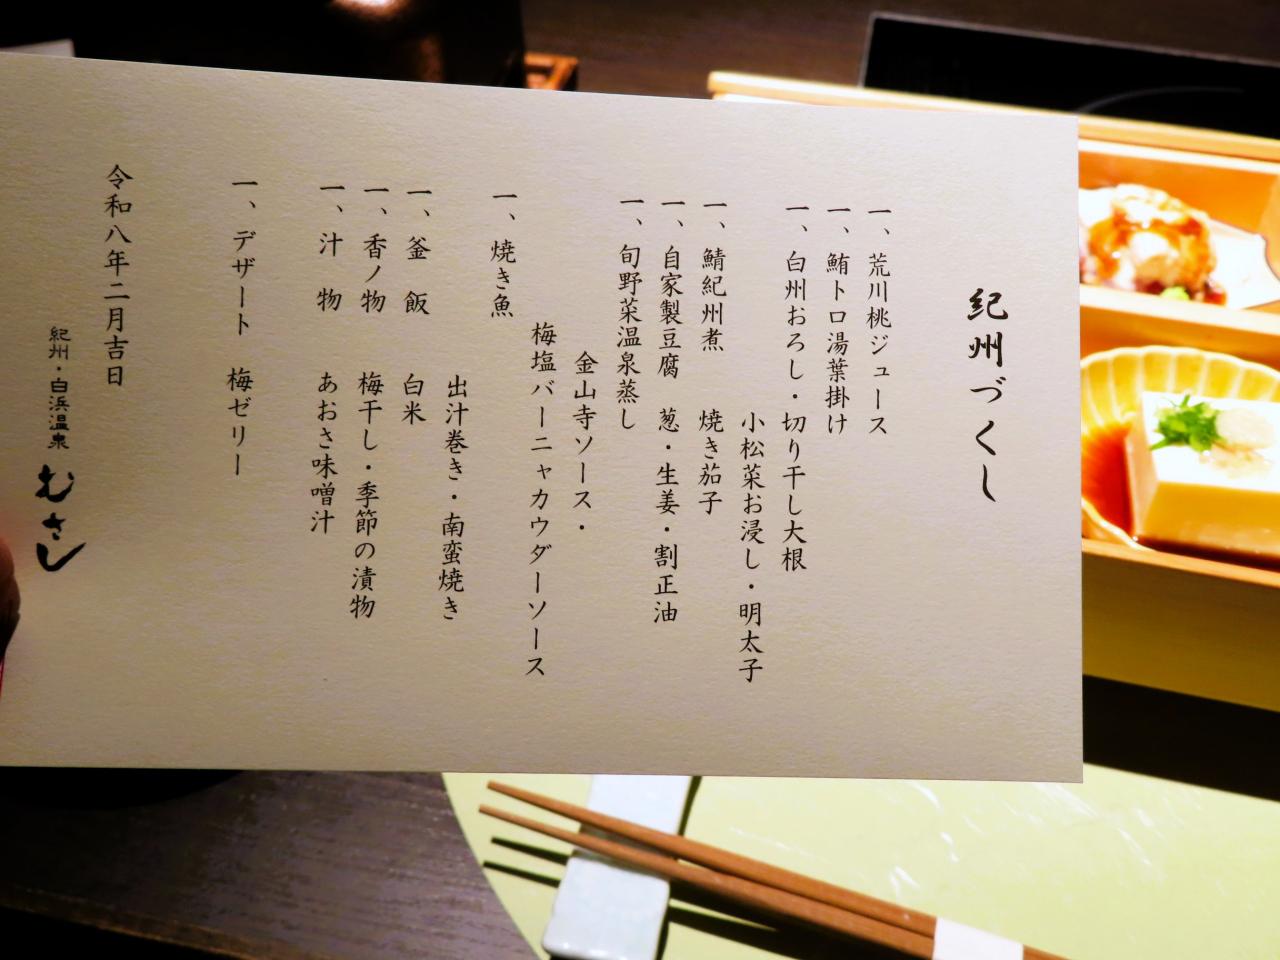 紀州づくし
一、荒川桃ジュース
一、鮪トロ湯葉掛け
一、白州おろし・切り干し大根
小松菜お浸し・明太子
一、鯖紀州煮　焼き茄子
一、自家製豆腐　葱・生姜・割正油
一、旬野菜温泉蒸し
金山寺ソース・
梅塩バーニャカウダーソース
一、焼き魚
出汁巻き・南蛮焼き
一、釜　飯　　白米
一、香ノ物　　梅干し・季節の漬物
一、汁　物　　あおさ味噌汁
一、デザート　梅ゼリー
令和八年二月吉日
紀州・白浜温泉 むさし